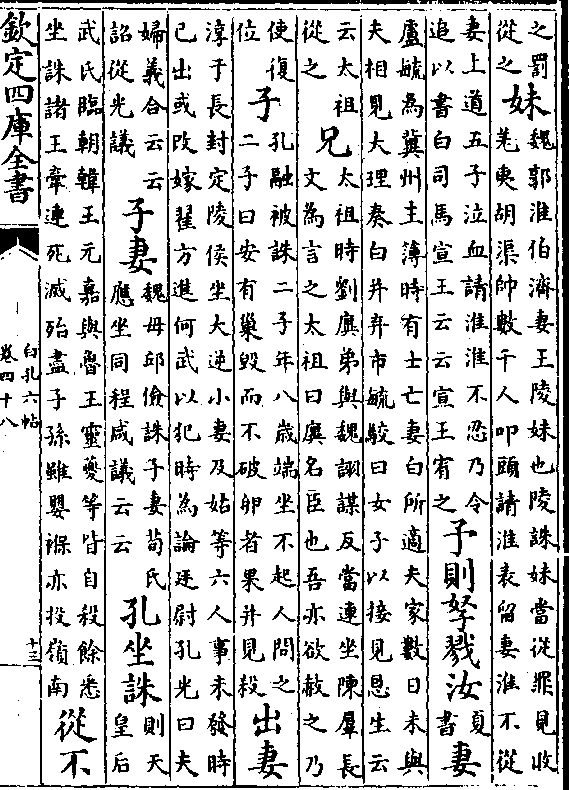 之罰
從之
妹
魏郭淮伯濟妻王陵妹也陵誅妹當從罪見收
羌夷胡渠帥數千人叩頭請淮表留妻淮不從
妻上道五子泣血請淮淮不忍乃令
追以書白司馬宣王云云宣王宥之
予則孥戮汝
夏
書
妻
盧毓為冀州主簿時有士亡妻白所適夫家數日未與
夫相見大理奏白并弃市毓駮曰女子以接見恩生云
云太祖
從之
兄
太祖時劉廙弟與魏諷謀反當連坐陳羣長
文為言之太祖曰廙名臣也吾亦欲赦之乃
使復
位
子
孔融被誅二子年八歲端坐不起人問之
二子曰安有巢毀而不破卵者果并見殺
出妻
淳于長封定陵侯坐大逆小妻及姑等六人事未發時
已出或改嫁翟方進何武以犯時為論廷尉孔光曰夫
婦義合云云
詔從光議
子妻
魏毋邱儉誅子妻荀氏
應坐同程咸議云云
孔坐誅
則天
皇后
武氏臨朝韓王元嘉與魯王靈夔等皆自殺餘悉
坐誅諸王牽連死滅殆盡子孫雖嬰褓亦投嶺南
從不
欽定四庫全書
白孔六帖
卷四十八
十三